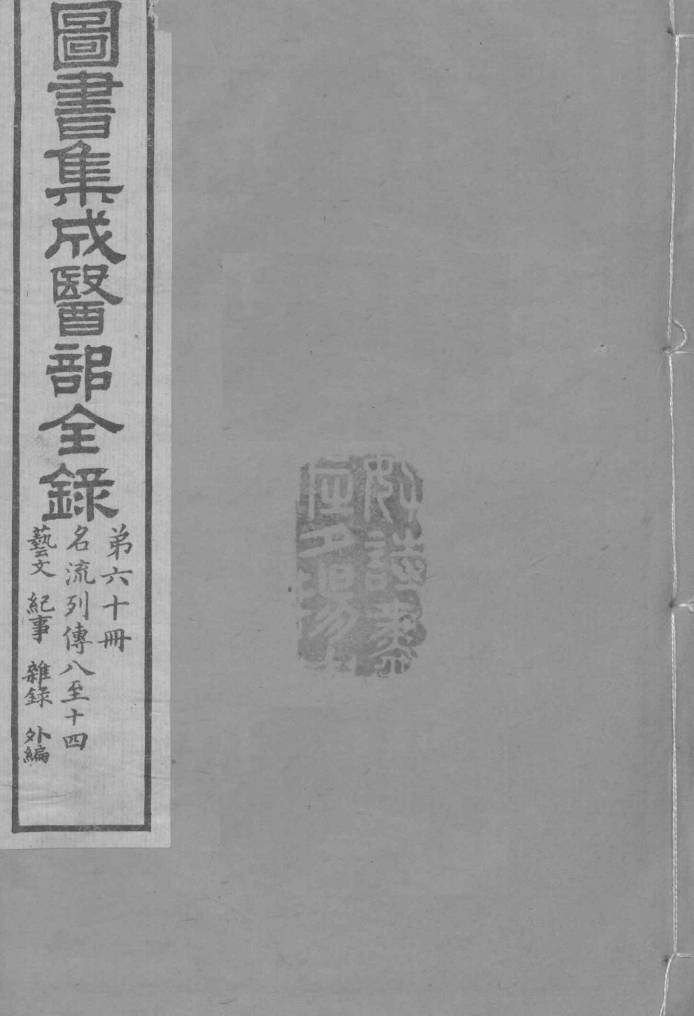 圖書集成醫部全錄
弟六十冊
名流列傳八至十四
藝文 紀事 雜錄 外編